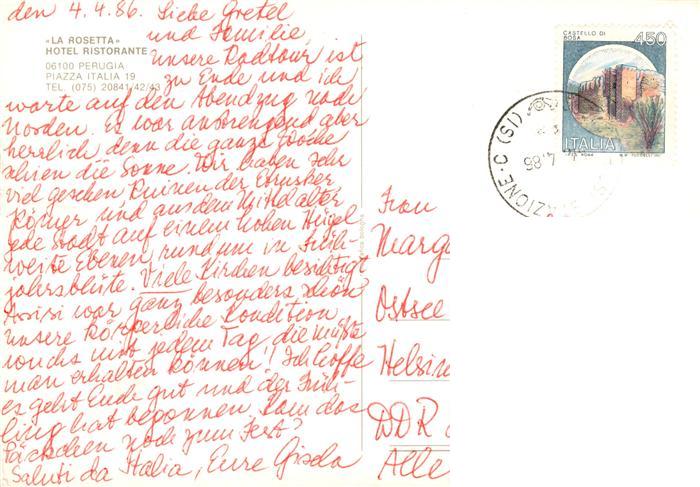 den 4.4.86. Liebe Gretel
und Familie,
unsere Radtour ist
zu Ende und ich
warte auf den Abendzug nach
Norden. Es war anstrengend aber
herrlich denn die ganze Woche
schien die Sonne. Wir haben sehr
viel gesehen Ruinen der Etrusker
Römer und aus dem Mittelalter
jede Stadt auf einem hohen Hügel
weite Ebenen rundum in Früh-
jahrsblüte. Viele Kirchen besichtigt
Assisi war ganz besonders schön
unsere körperliche Kondition
wuchs mit jedem Tag die müßte
man erhalten können! Ich hoffe
es geht Euch gut und der Früh-
ling hat begonnen. Kam das
Päckchen noch zum Fest?
Saluti da Italia, Eure Gisela
«LA ROSETTA»
HOTEL RISTORANTE
06100 PERUGIA
PIAZZA ITALIA 19
TEL. (075) 20841/42/43
CASTELLO DI
BOSA
450
ITALIA
ZIONE-C (SI)
4.86
Frau
Marga
Ostsee
Helsin
DDR
Alle